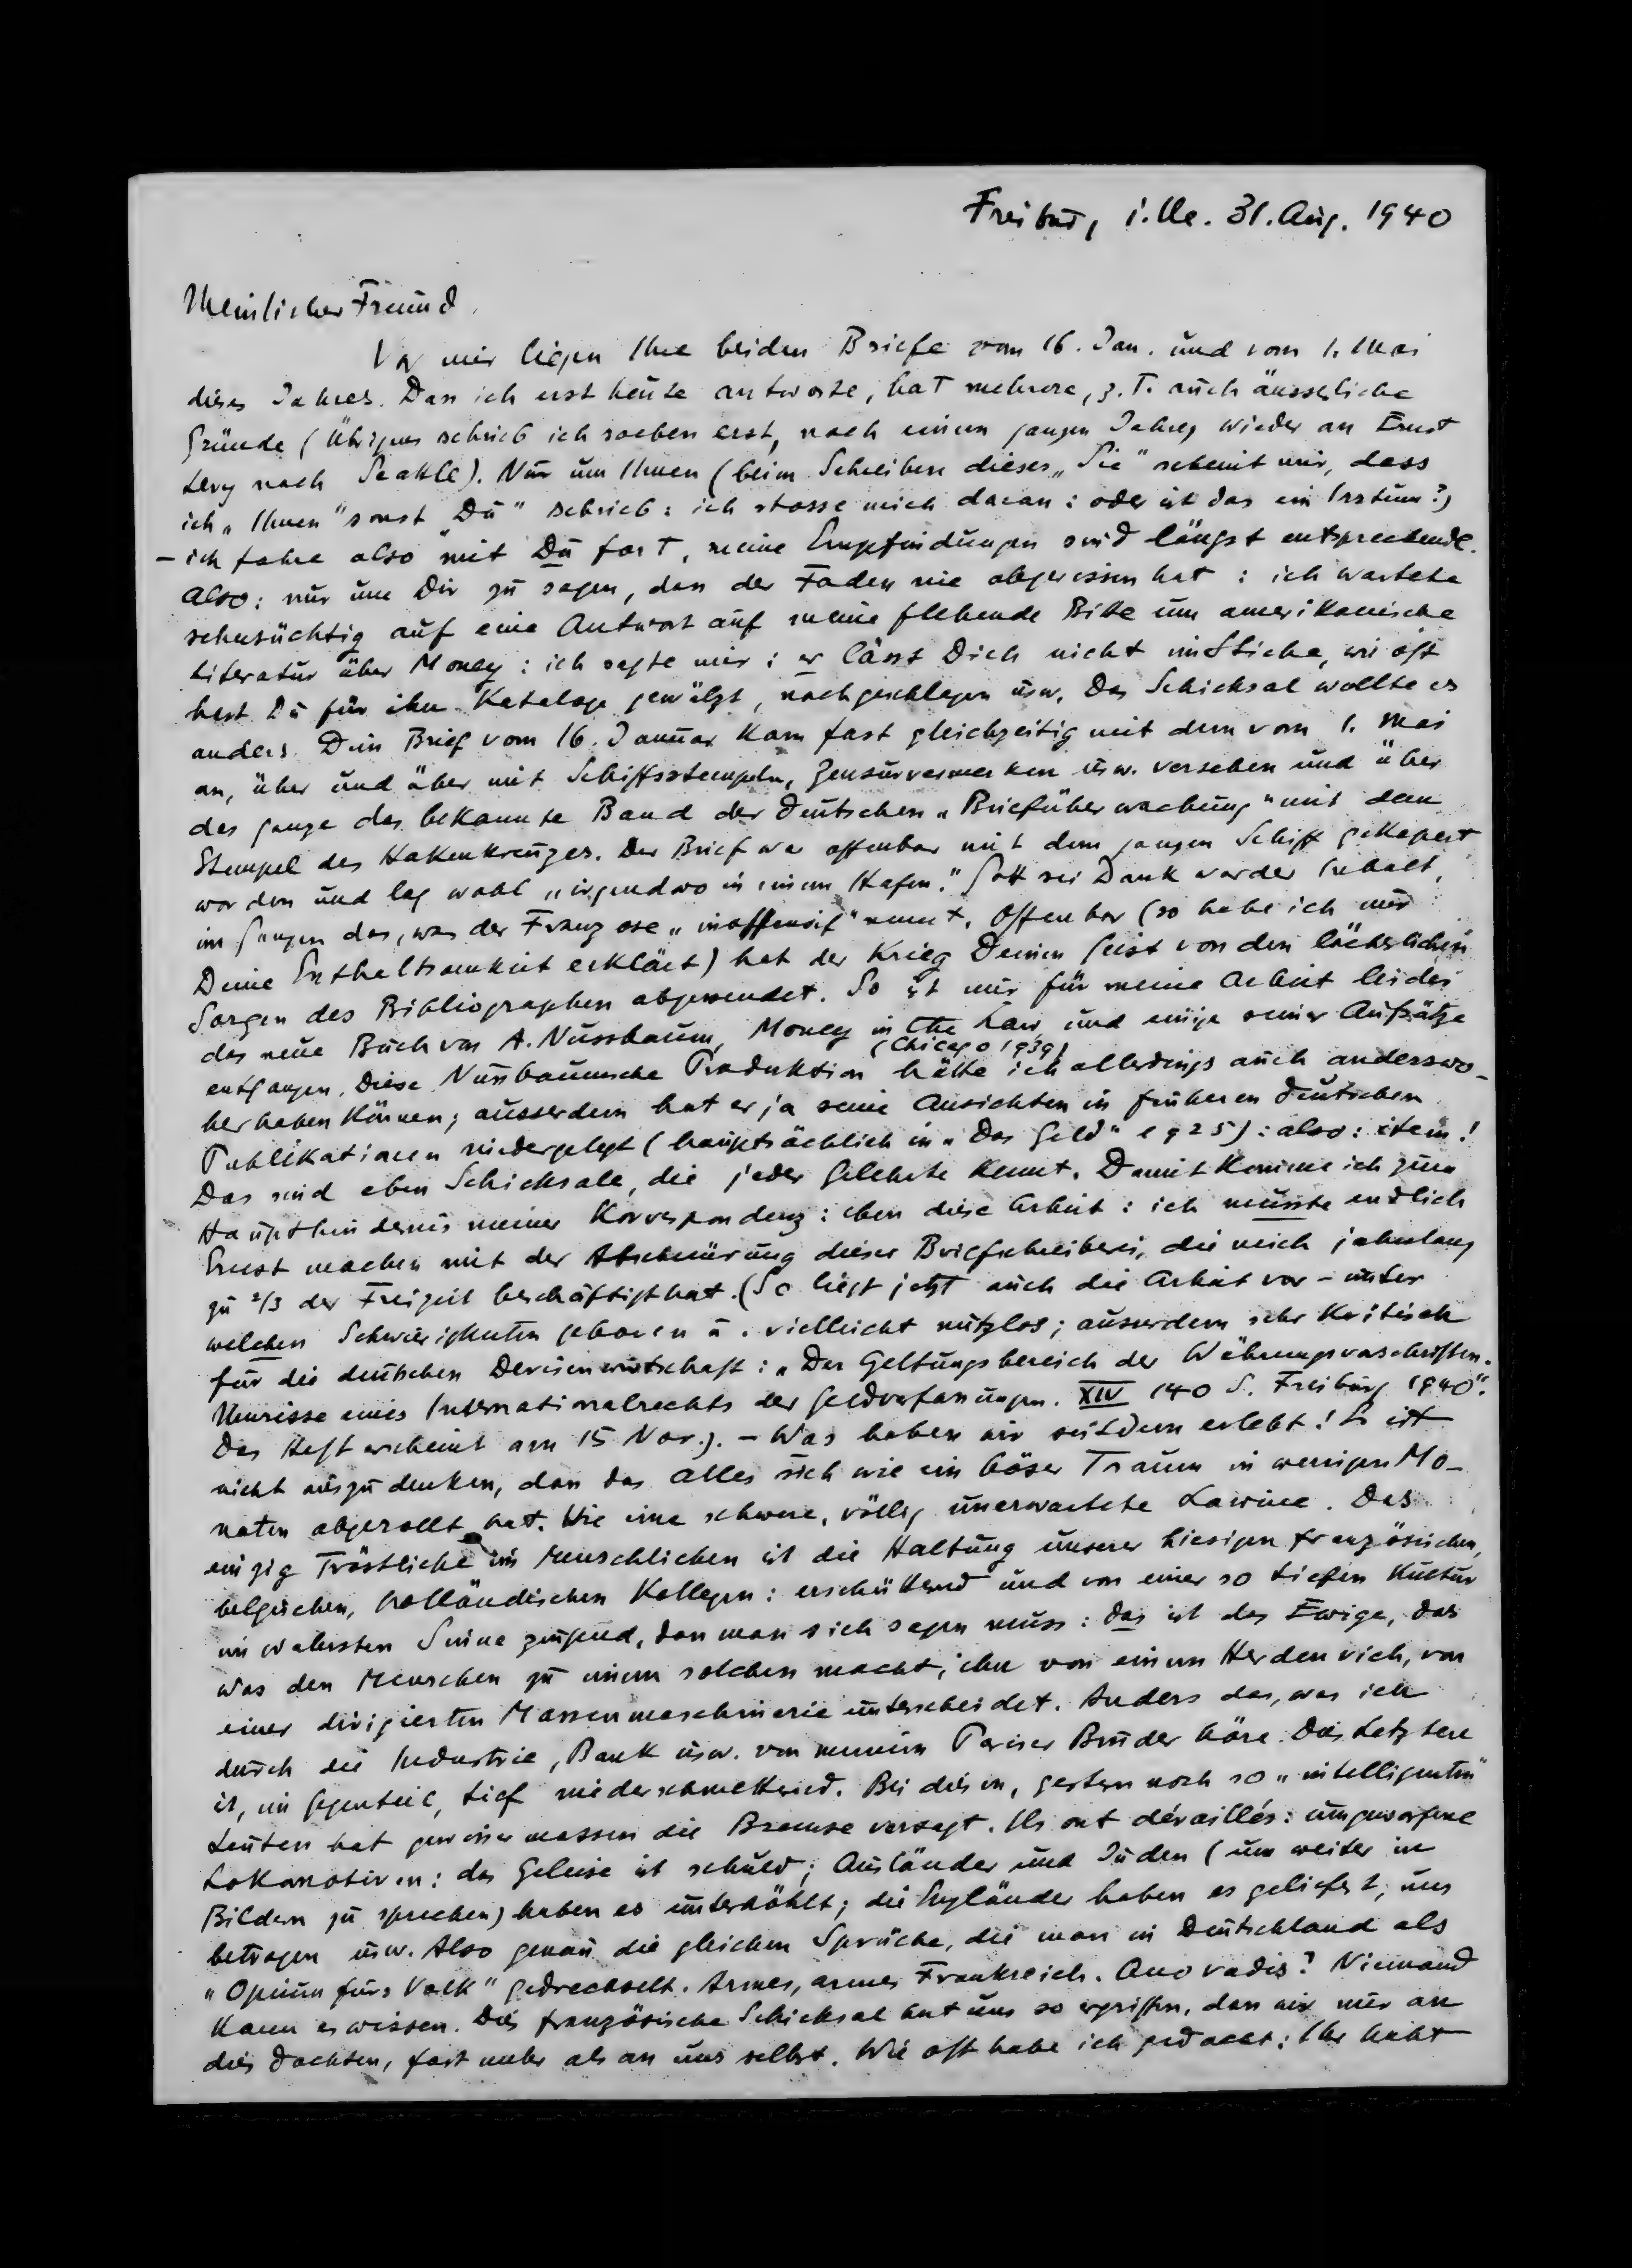 Freiburg i. Ue. 31. Aug. 1940
Mein lieber Freund,
Vor mir liegen Ihre beiden Briefe vom 16. Jan. und vom 1. Mai
dieses Jahres. Dass ich erst heute antworte, hat mehrere, z. T. auch äusserliche
Gründe (übrigens schrieb ich soeben erst, nach einem ganzen Jahre, wieder an Ernst
Levy nach Seattle). Nur um Ihnen (beim Schreiben dieses „Sie" scheint mir, dass
ich „Ihnen" sonst „Du" schrieb: ich stosse mich daran: oder ist das ein Irrtum?)
– ich fahre also mit Du fort, meine Empfindungen sind längst entsprechende.
Also: nur um Dir zu sagen, dass der Faden nie abgerissen hat: ich wartete
sehnsüchtig auf eine Antwort auf meine flehende Bitte um amerikanische
Literatur über Money: ich sagte mir: er lässt Dich nicht im Stiche, wie oft
hast Du für ihn Kataloge gewälzt, nachgeschlagen usw. Das Schicksal wollte es
anders. Dein Brief vom 16. Januar kam fast gleichzeitig mit dem vom 1. Mai
an, über und über mit Schiffsstempeln, Zensurvermerken usw. versehen und über
das ganze das bekannte Band der deutschen „Briefüberwachung" mit dem
Stempel des Hakenkreuzes. Der Brief war offenbar mit dem ganzen Schiff gekapert
worden und lag wohl „irgendwo in einem Hafen." Gott sei Dank war der Inhalt,
im Ganzen das, was der Franzose „inoffensif" nennt. Offenbar (so habe ich mir
Deine Enthaltsamkeit erklärt) hat der Krieg Deinen Geist von den lächerlichen
Sorgen des Bibliographen abgewendet. So ist mir für meine Arbeit leider
das neue Buch von A. Nussbaum, Money in the Law und einige seiner Aufsätze
(Chicago 1939)
entgangen. Diese Nussbaumsche Produktion hätte ich allerdings auch anderswo-
her haben können; ausserdem hat er ja seine Ansichten in früheren deutschen
Publikationen niedergelegt (hauptsächlich in „Das Geld" 1925): also: item!
Das sind eben Schicksale, die jeder Gelehrte kennt. Damit komme ich zum
Haupthindernis meiner Korrespondenz: eben diese Arbeit: ich musste endlich
Ernst machen mit der Abschnürung dieser Briefschreiberei, die mich jahrelang
zu 2/3 der Freizeit beschäftigt hat. (So liegt jetzt auch die Arbeit vor – unter
welchen Schwierigkeiten geboren u. vielleicht nutzlos; ausserdem sehr kritisch
für die deutschen Devisenwirtschaft: „Der Geltungsbereich der Währungsvorschriften.
Umrisse eines Internationalrechts der Geldverfassungen. XIV 140 S. Freiburg 1940".
Das Heft erscheint am 15 Nov.). – Was haben wir seitdem erlebt! Es ist
nicht auszudenken, dass das alles sich wie ein böser Traum in wenigen Mo-
naten abgerollt hat. Wie eine schwere, völlig unerwartete Lawine. Das
einzig Tröstliche im Menschlichen ist die Haltung unserer hiesigen französischen,
belgischen, holländischen Kollegen: erschütternd und von einer so tiefen Kultur
im wahrsten Sinne zeugend, dass man sich sagen muss: das ist das Ewige, das
was den Menschen zu einem solchen macht, ihn von einem Herdenvieh, von
einer dirigierten Massenmaschinerie unterscheidet. Anders das, was ich
durch die Industrie, Bank usw. von meinem Pariser Bruder höre. Das Letztere
ist, im Gegenteil, tief niederschmetternd. Bei diesen, gestern noch so „intelligenten"
Leuten hat gewissermassen die Bremse versagt. Ils ont déraillés: umgeworfene
Lokomotiven: das Geleise ist schuld; Ausländer und Juden (um weiter in
Bildern zu sprechen) haben es unterhöhlt; die Engländer haben es geliefert, uns
betrogen usw. Also genau die gleichen Sprüche, die man in Deutschland als
„Opium fürs Volk" gedrechselt. Armes, armes Frankreich. Quo vadis? Niemand
kann es wissen. Dies französische Schicksal hat uns so ergriffen, dass wir nur an
dies dachten, fast mehr als an uns selbst. Wie oft habe ich gedacht: Ihr habt